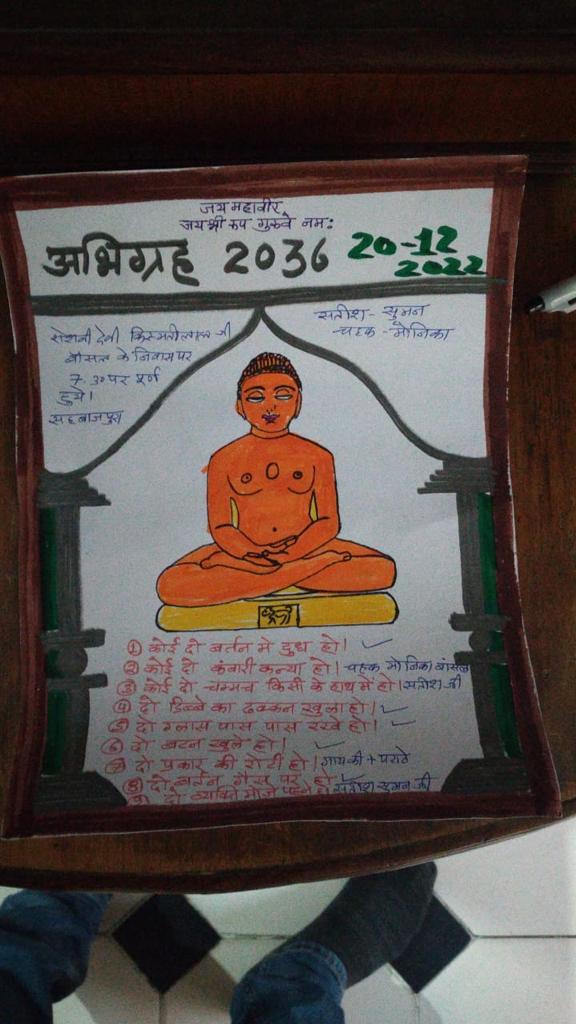 जय महावीर
जय श्री रुप गुरुवे नम:
अभिग्रह 2036
20-12
2022
रोशनी देवी किस्मतीलाल जी
बांसल के निवास पर
7.30 पर पूर्ण
हुये।
सहबाजपुरा
सतीश - सुमन
चहक - मोनिका
① कोई दो बर्तन मे दुध हो।
② कोई दो कंवारी कन्या हो। चहक मोनिका बांसल
③ कोई दो चम्मच किसी के हाथ में हो। सतीश जी
④ दो डिब्बे का ढक्कन खुला हो।
⑤ दो ग्लास पास पास रखे हो।
⑥ दो बटन खुले हो।
⑦ दो प्रकार की रोटी हो। गाय की + पराठे
⑧ दो बर्तन गैस पर हो
⑨ दो व्यक्ति मोजे पहने हो सतीश सुमन जी